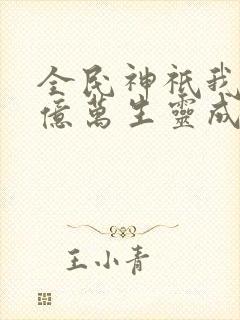 全民神祇我
億萬生靈成
王小青